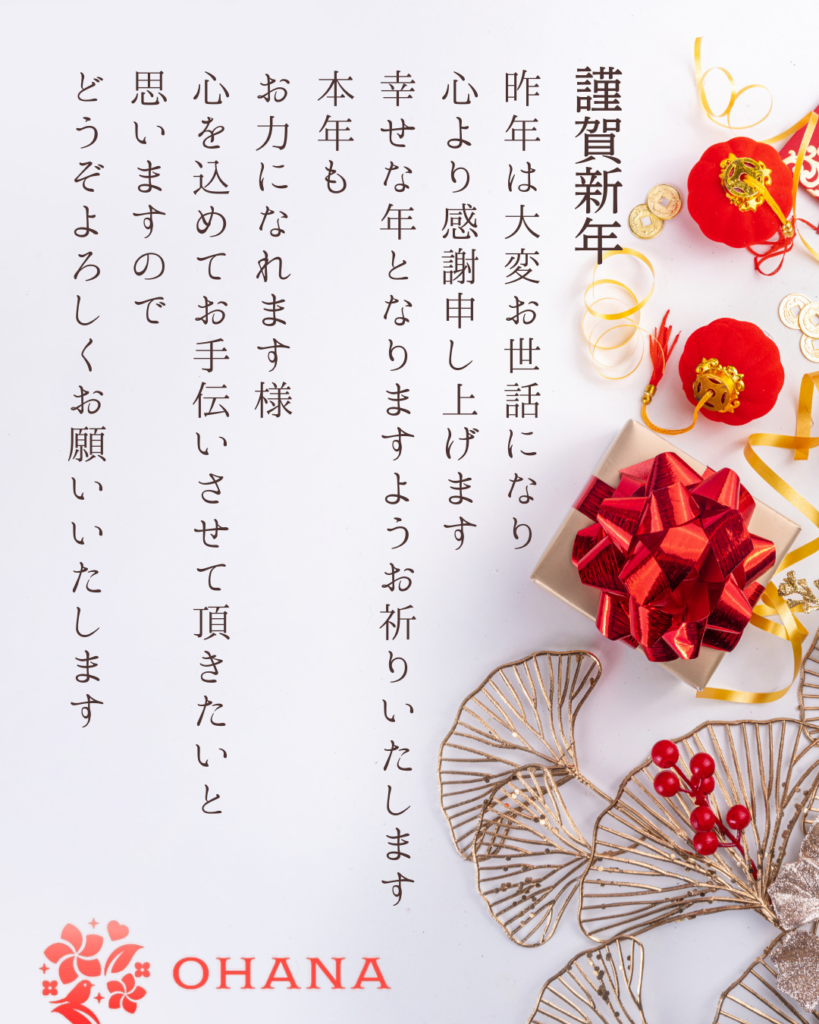 謹賀新年
昨年は大変お世話になり
心より感謝申し上げます
幸せな年となりますようお祈りいたします
本年も
お力になれます様
心を込めてお手伝いさせて頂きたいと
思いますので
どうぞよろしくお願いいたします
OHANA